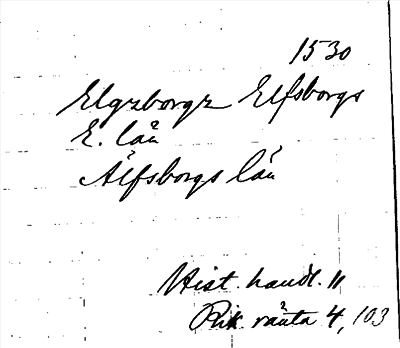 1530
Elgzborgz Elfsborgs
E. län
Älfsborgs län
Hist. handl. 11
Rik. ränta 4, 103